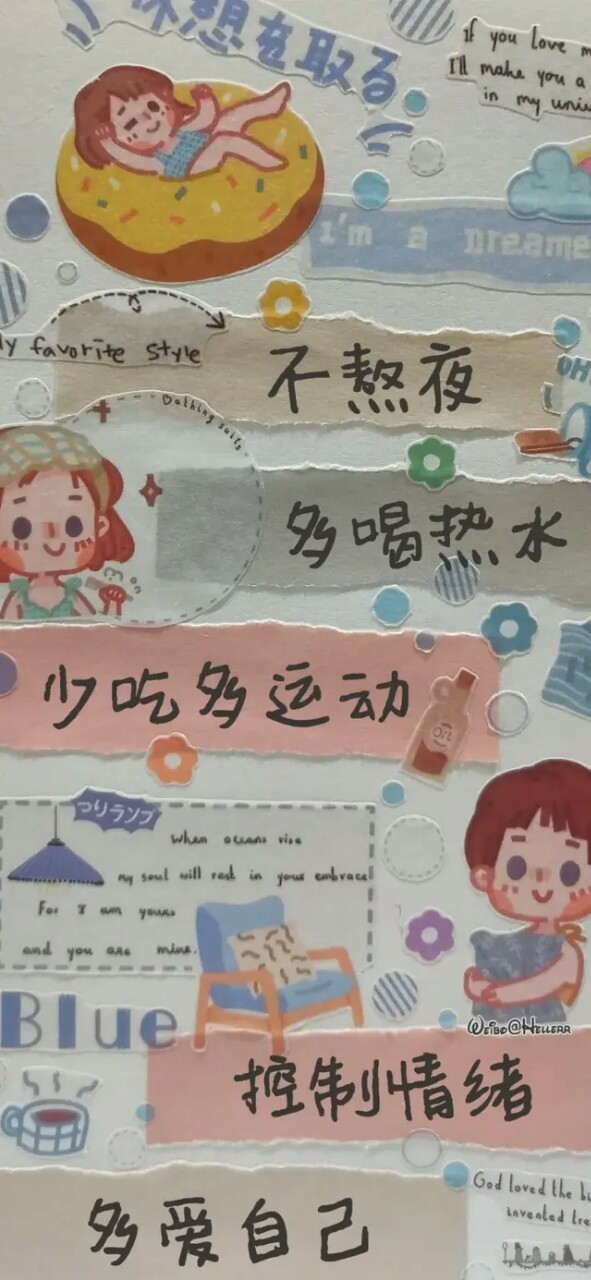 休想を取る
If you love m
I'll make you a
in my uni
I'm a Dreame
My favorite style
不熬夜
OH
Bathing suits
多喝热水
少吃多运动
OIL
つりランプ
When oceans rise
my soul will rest in your embrace
For I am yours
and you are mine.
Blue
WEIBO@HELLERR
控制情绪
God loved the bi
invented tre
多爱自己